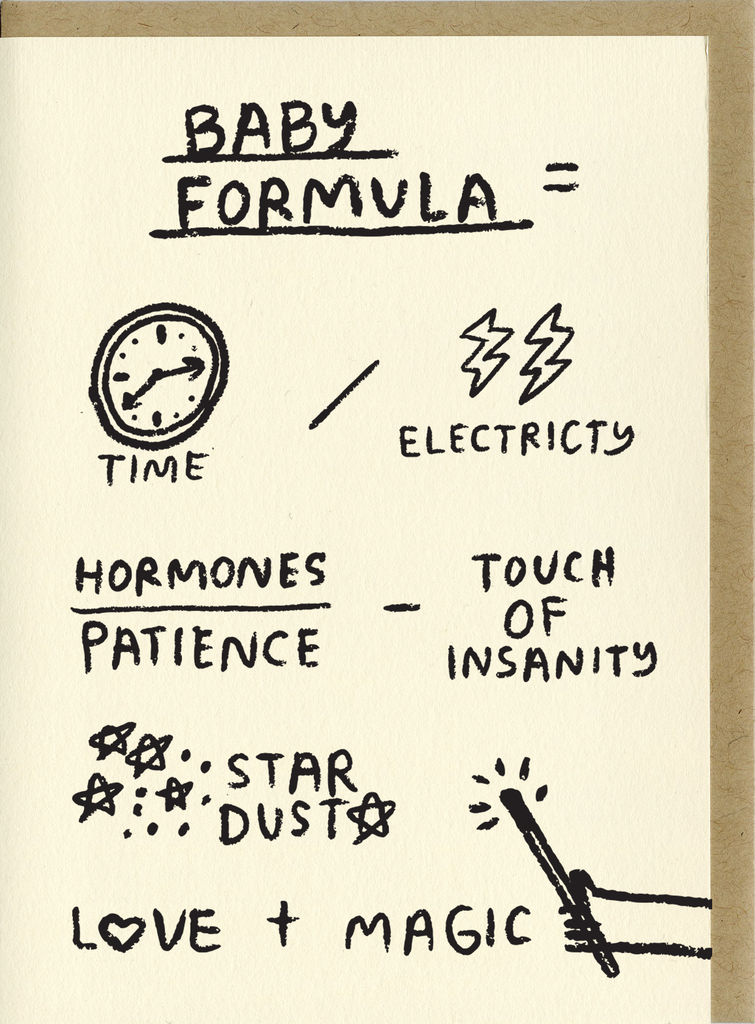 BABY
FORMULA =
TIME / ELECTRICTY
HORMONES
PATIENCE
- TOUCH
OF
INSANITY
STAR
DUST
LOVE + MAGIC